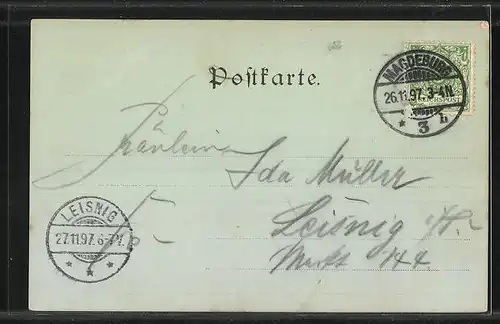 Postkarte.
MAGDEBURG
26.11.97. 3-4N.
* 3 b
REICHSPOST
Fräulein
Ida Müller
Leisnig i/S.
Markt 144.
LEISNIG
27.11.97. 6-7V.
* * *